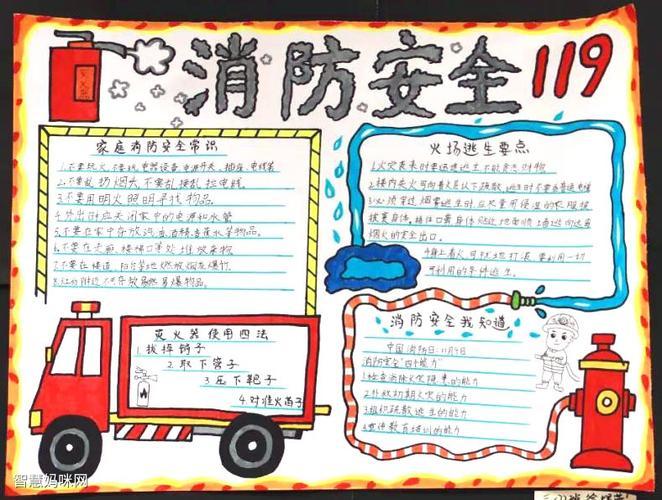 消防安全 119
灭火器
家庭消防安全常识
1.不要玩火、不要玩电器设备、电源开关、插座、电线等
2.不要乱扔烟头,不要乱接乱拉电线。
3.不要用明火照明寻找物品。
4.外出时应关闭家中的电源和水管
5.不要在家中存放汽油、酒精、香蕉水等物品。
6.不要在走廊、楼梯口等处堆放杂物。
7.不要在楼道、阳台等地燃放烟花爆竹。
品。
灭火器使用四法
1.拔掉销子
2.取下管子
3.压下靶子
4.对准火苗子
火场逃生要点
1.火灾袭来时要迅速逃生不能贪恋财物
2.楼内失火可向着火层以下疏散,逃生时不要乘普通电梯
3.必须穿过烟雾逃生时,应尽量用浸湿的衣服披
披裹身体,捂住口鼻身体贴近地面顺墙逃向远离
烟火的安全出口。
4.身上着火,可就地打滚
可利用的条件逃生。
消防安全我知道
中国消防日:11月9日
消防安全"四个能力"
1.检查消除火灾隐患的能力
2.扑救初期火灾的能力
3.组织疏散逃生的能力
4.宣传教育培训的能力
智慧妈咪网